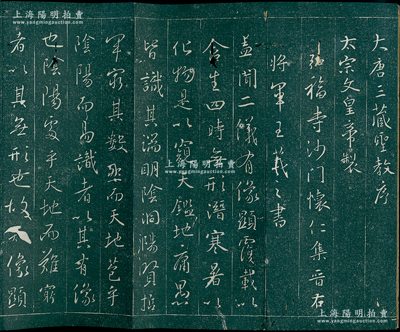 上海陽明拍賣
www.yangmingauction.com
大唐三藏聖教序
太宗文皇帝製
弘福寺沙門懷仁集晉右
將軍王羲之書
蓋聞二儀有像顯覆載以
含生四時無形潛寒暑以
化物是以窺天鑑地庸愚
皆識其端明陰洞陽賢哲
罕窮其數然而天地苞乎
陰陽而易識者以其有像
也陰陽處乎天地而難窮
者以其無形也故像顯
上海陽明拍賣
www.yangmingauction.com